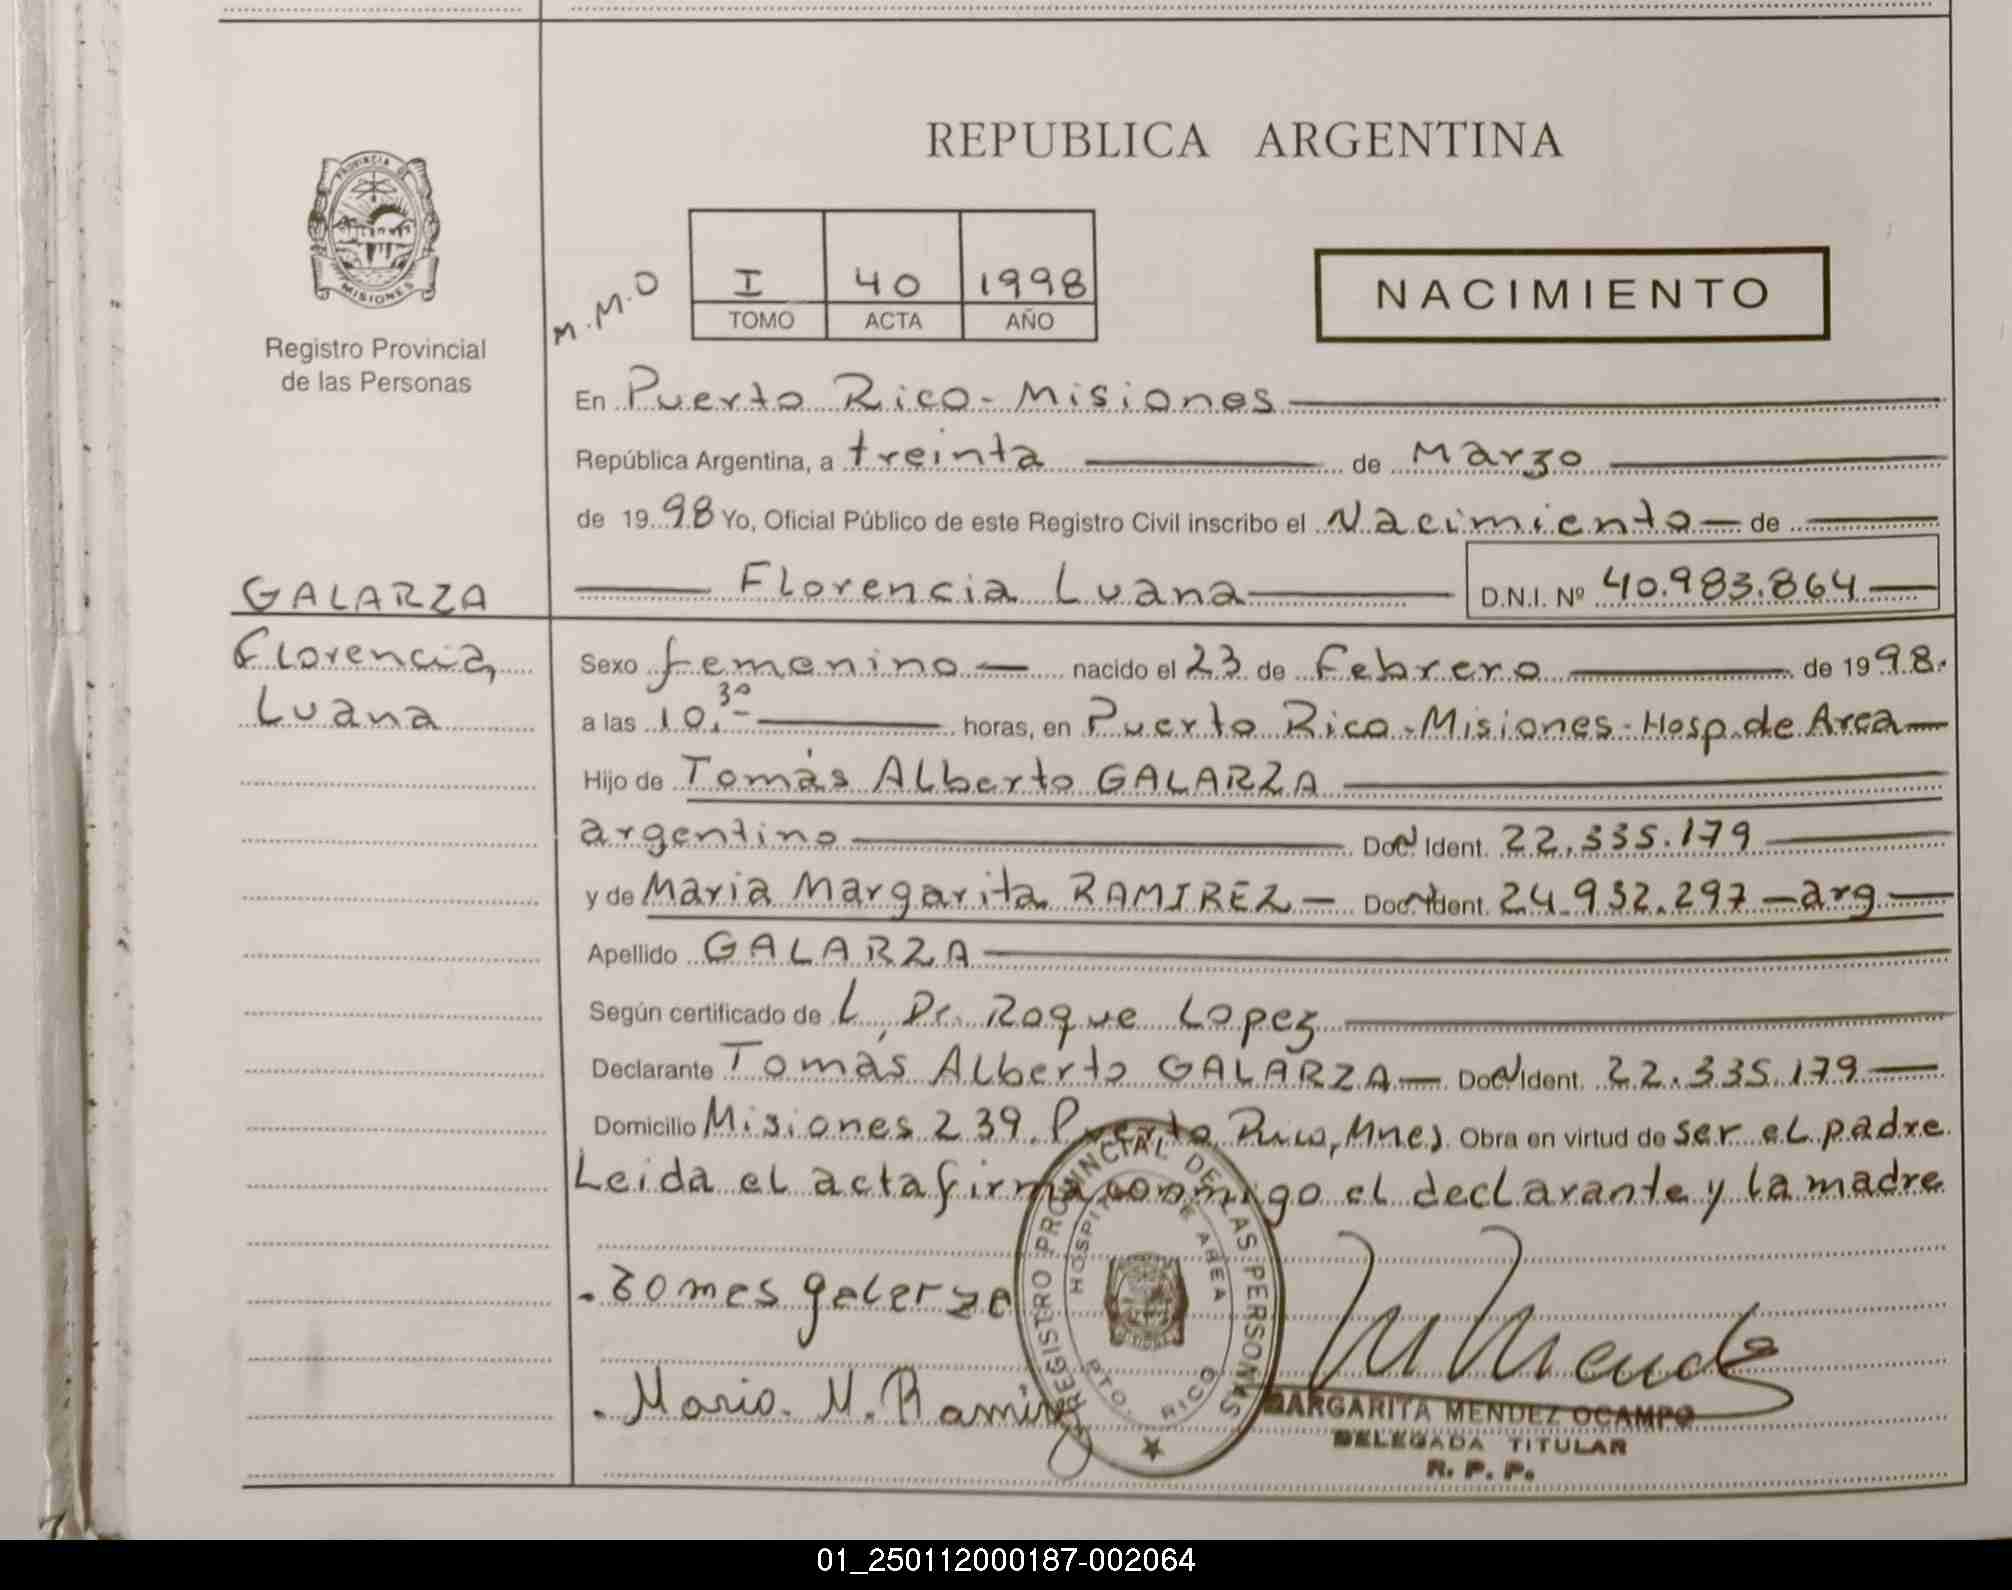 REPUBLICA ARGENTINA
PROVINCIA DE
MISIONES
Registro Provincial
de las Personas
M.M.O
I 40 1998
TOMO ACTA AÑO
NACIMIENTO
En Puerto Rico - Misiones
República Argentina, a treinta de Marzo
de 1998 Yo, Oficial Público de este Registro Civil inscribo el Nacimiento de
Florencia Luana D.N.I. Nº 40.983.864
GALARZA
Florencia,
Luana
Sexo femenino nacido el 23 de Febrero de 1998.
a las 10.30 horas, en Puerto Rico - Misiones - Hosp. de Area
Hijo de Tomás Alberto GALARZA
argentino Doc Ident. 22.335.179
y de Maria Margarita RAMIREZ Doc Ident. 24.932.297 - arg
Apellido GALARZA
Según certificado de L, Dr. Roque Lopez
Declarante Tomás Alberto GALARZA Doc Ident. 22.335.179
Domicilio Misiones 239, Puerto Rico, Mnes. Obra en virtud de ser el padre
Leida el acta firma conmigo el declarante y la madre
REGISTRO PROVINCIAL DE LAS PERSONAS
HOSPITAL DE AREA
PTO. RICO
. Tomes galerza
. Maria. M. Ramirez
M Mendez
MARGARITA MENDEZ OCAMPO
DELEGADA TITULAR
R. P. P.
01_250112000187-002064